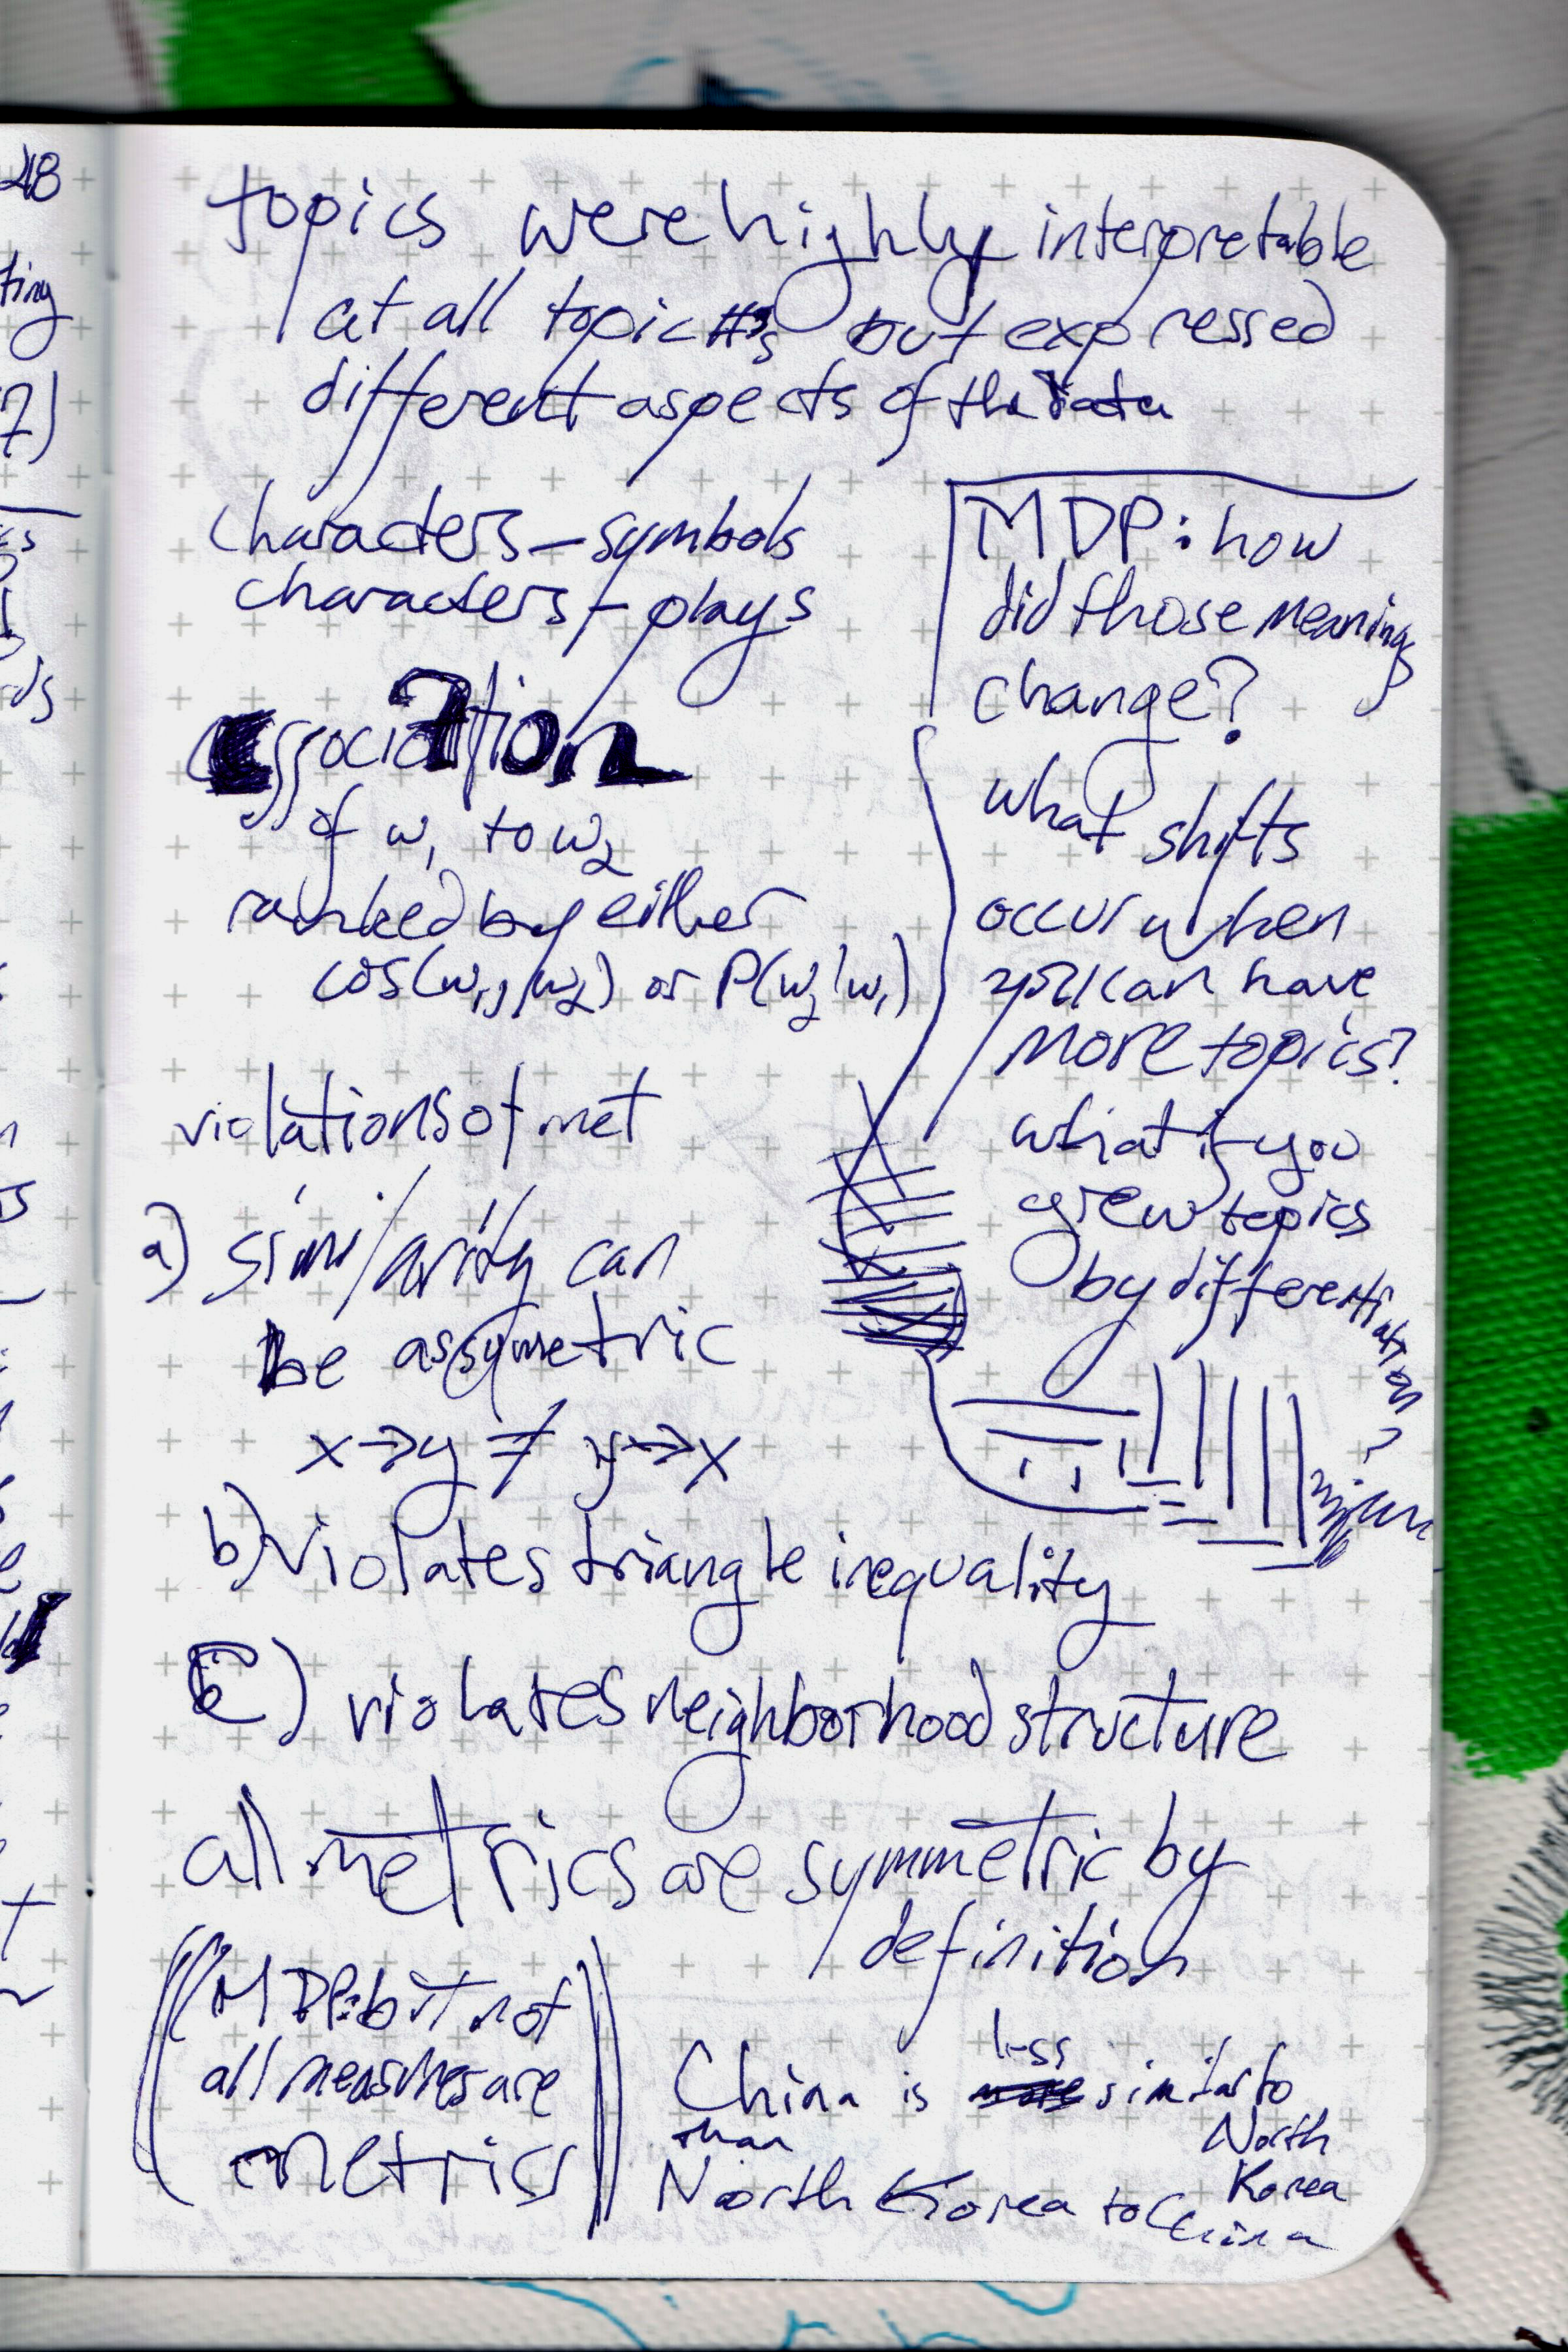 48
ting
7)
ds
topics were highly interpretable
at all topic #s but expressed
different aspects of the data
characters – symbols
characters – plays
association
of w₁ to w₂
ranked by either
cos(w₁, w₂) or P(w₂|w₁)
MDP: how
did those meanings
change?
what shifts
occur when
you can have
more topics?
what if you
grew topics
by differentiation?
violations of met
a) similarity can
be assymetric
x→y ≠ y→x
b) violates triangle inequality
c) violates neighborhood structure
all metrics are symmetric by
definition
((MDP: but not
all measures are
metrics))
China is less similar to
North
Korea
than
North Korea to China